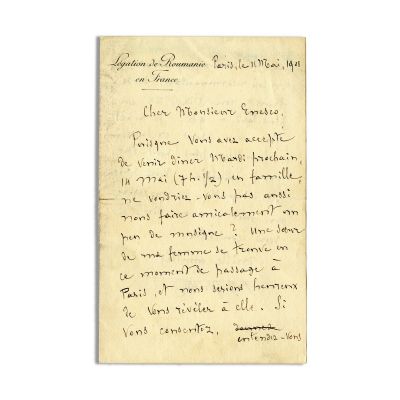 Légation de Roumanie
en France
Paris, le 11 Mai, 1901
Cher Monsieur Enesco,
Puisque Vous avez accepté
de venir dîner Mardi prochain,
14 Mai (7 h. 1/2), en famille,
ne voudriez-vous pas aussi
nous faire amicalement un
peu de musique? Une sœur
de ma femme se trouve en
ce moment de passage à
Paris, et nous serions heureux
de Vous révéler à elle. Si
vous consentez,
entendez-Vous